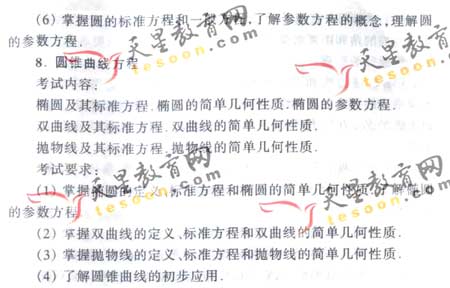 (6) 掌握圆的标准方程和一般方程.了解参数方程的概念,理解圆
的参数方程.
8. 圆锥曲线方程
考试内容:
椭圆及其标准方程.椭圆的简单几何性质.椭圆的参数方程.
双曲线及其标准方程.双曲线的简单几何性质.
抛物线及其标准方程.抛物线的简单几何性质.
考试要求:
(1) 掌握椭圆的定义、标准方程和椭圆的简单几何性质,了解椭圆
的参数方程.
(2) 掌握双曲线的定义、标准方程和双曲线的简单几何性质.
(3) 掌握抛物线的定义、标准方程和抛物线的简单几何性质.
(4) 了解圆锥曲线的初步应用.
天星教育网
tesoon.com
天星教育网
tesoon.com
天星教育网
tesoon.com
天星教育网
tesoon.com